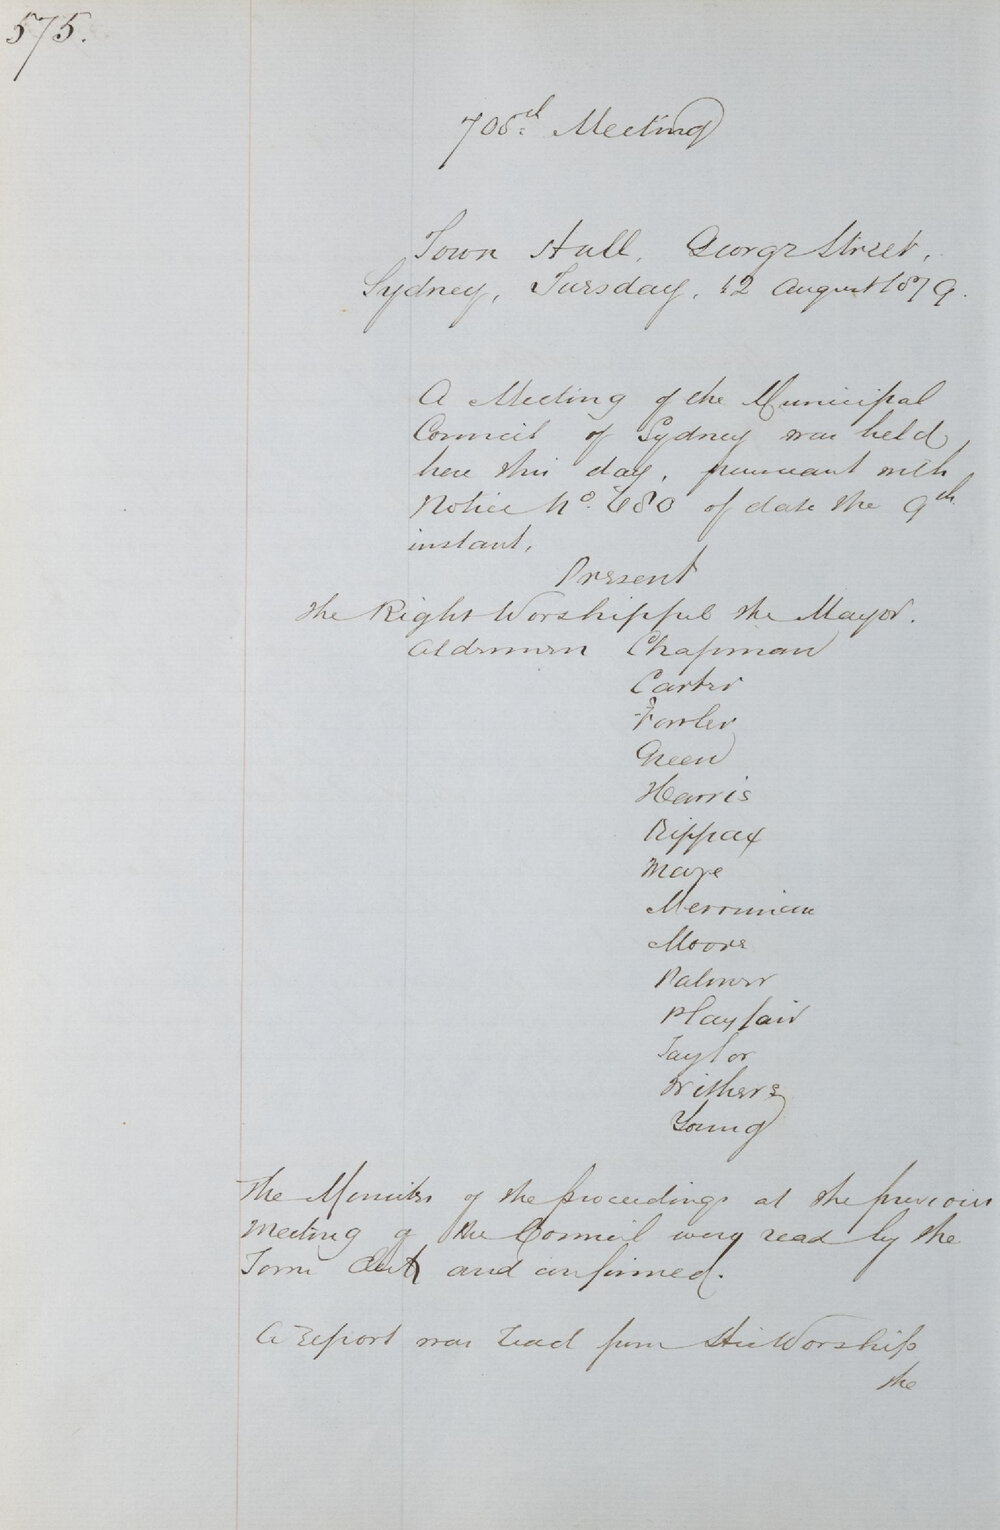 575.
Meeting
Town Hall, George Street,
Sydney, Tuesday, 12 August 1879.
A Meeting of the Municipal
Council of Sydney was held
here this day, pursuant with
Notice No. 680 of date the 9th
instant,
Present
The Right Worshipful the Mayor.
Aldermen Chapman
Carter
Fowler
Green
Harris
Kippax
Maze
Merriman
Moore
Palmer
Playfair
Taylor
Withers
Young
The Minutes of the proceedings at the previous
meeting of the Council were read by the
Town Clerk and confirmed.
A report was read from His Worship
the